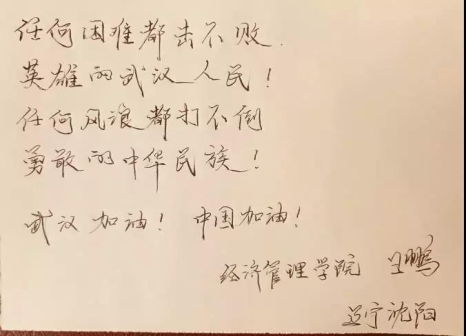 任何困难都击不败.
英雄的武汉人民!
任何风浪都打不倒
勇敢的中华民族!
武汉加油! 中国加油!
经济管理学院 王鹏
辽宁沈阳